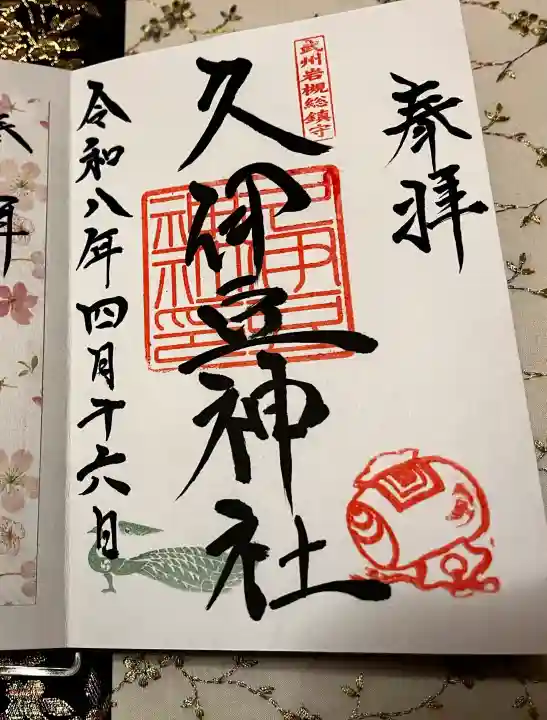 奉拝
武州岩槻総鎮守
久伊豆神社
令和八年四月十六日
拝